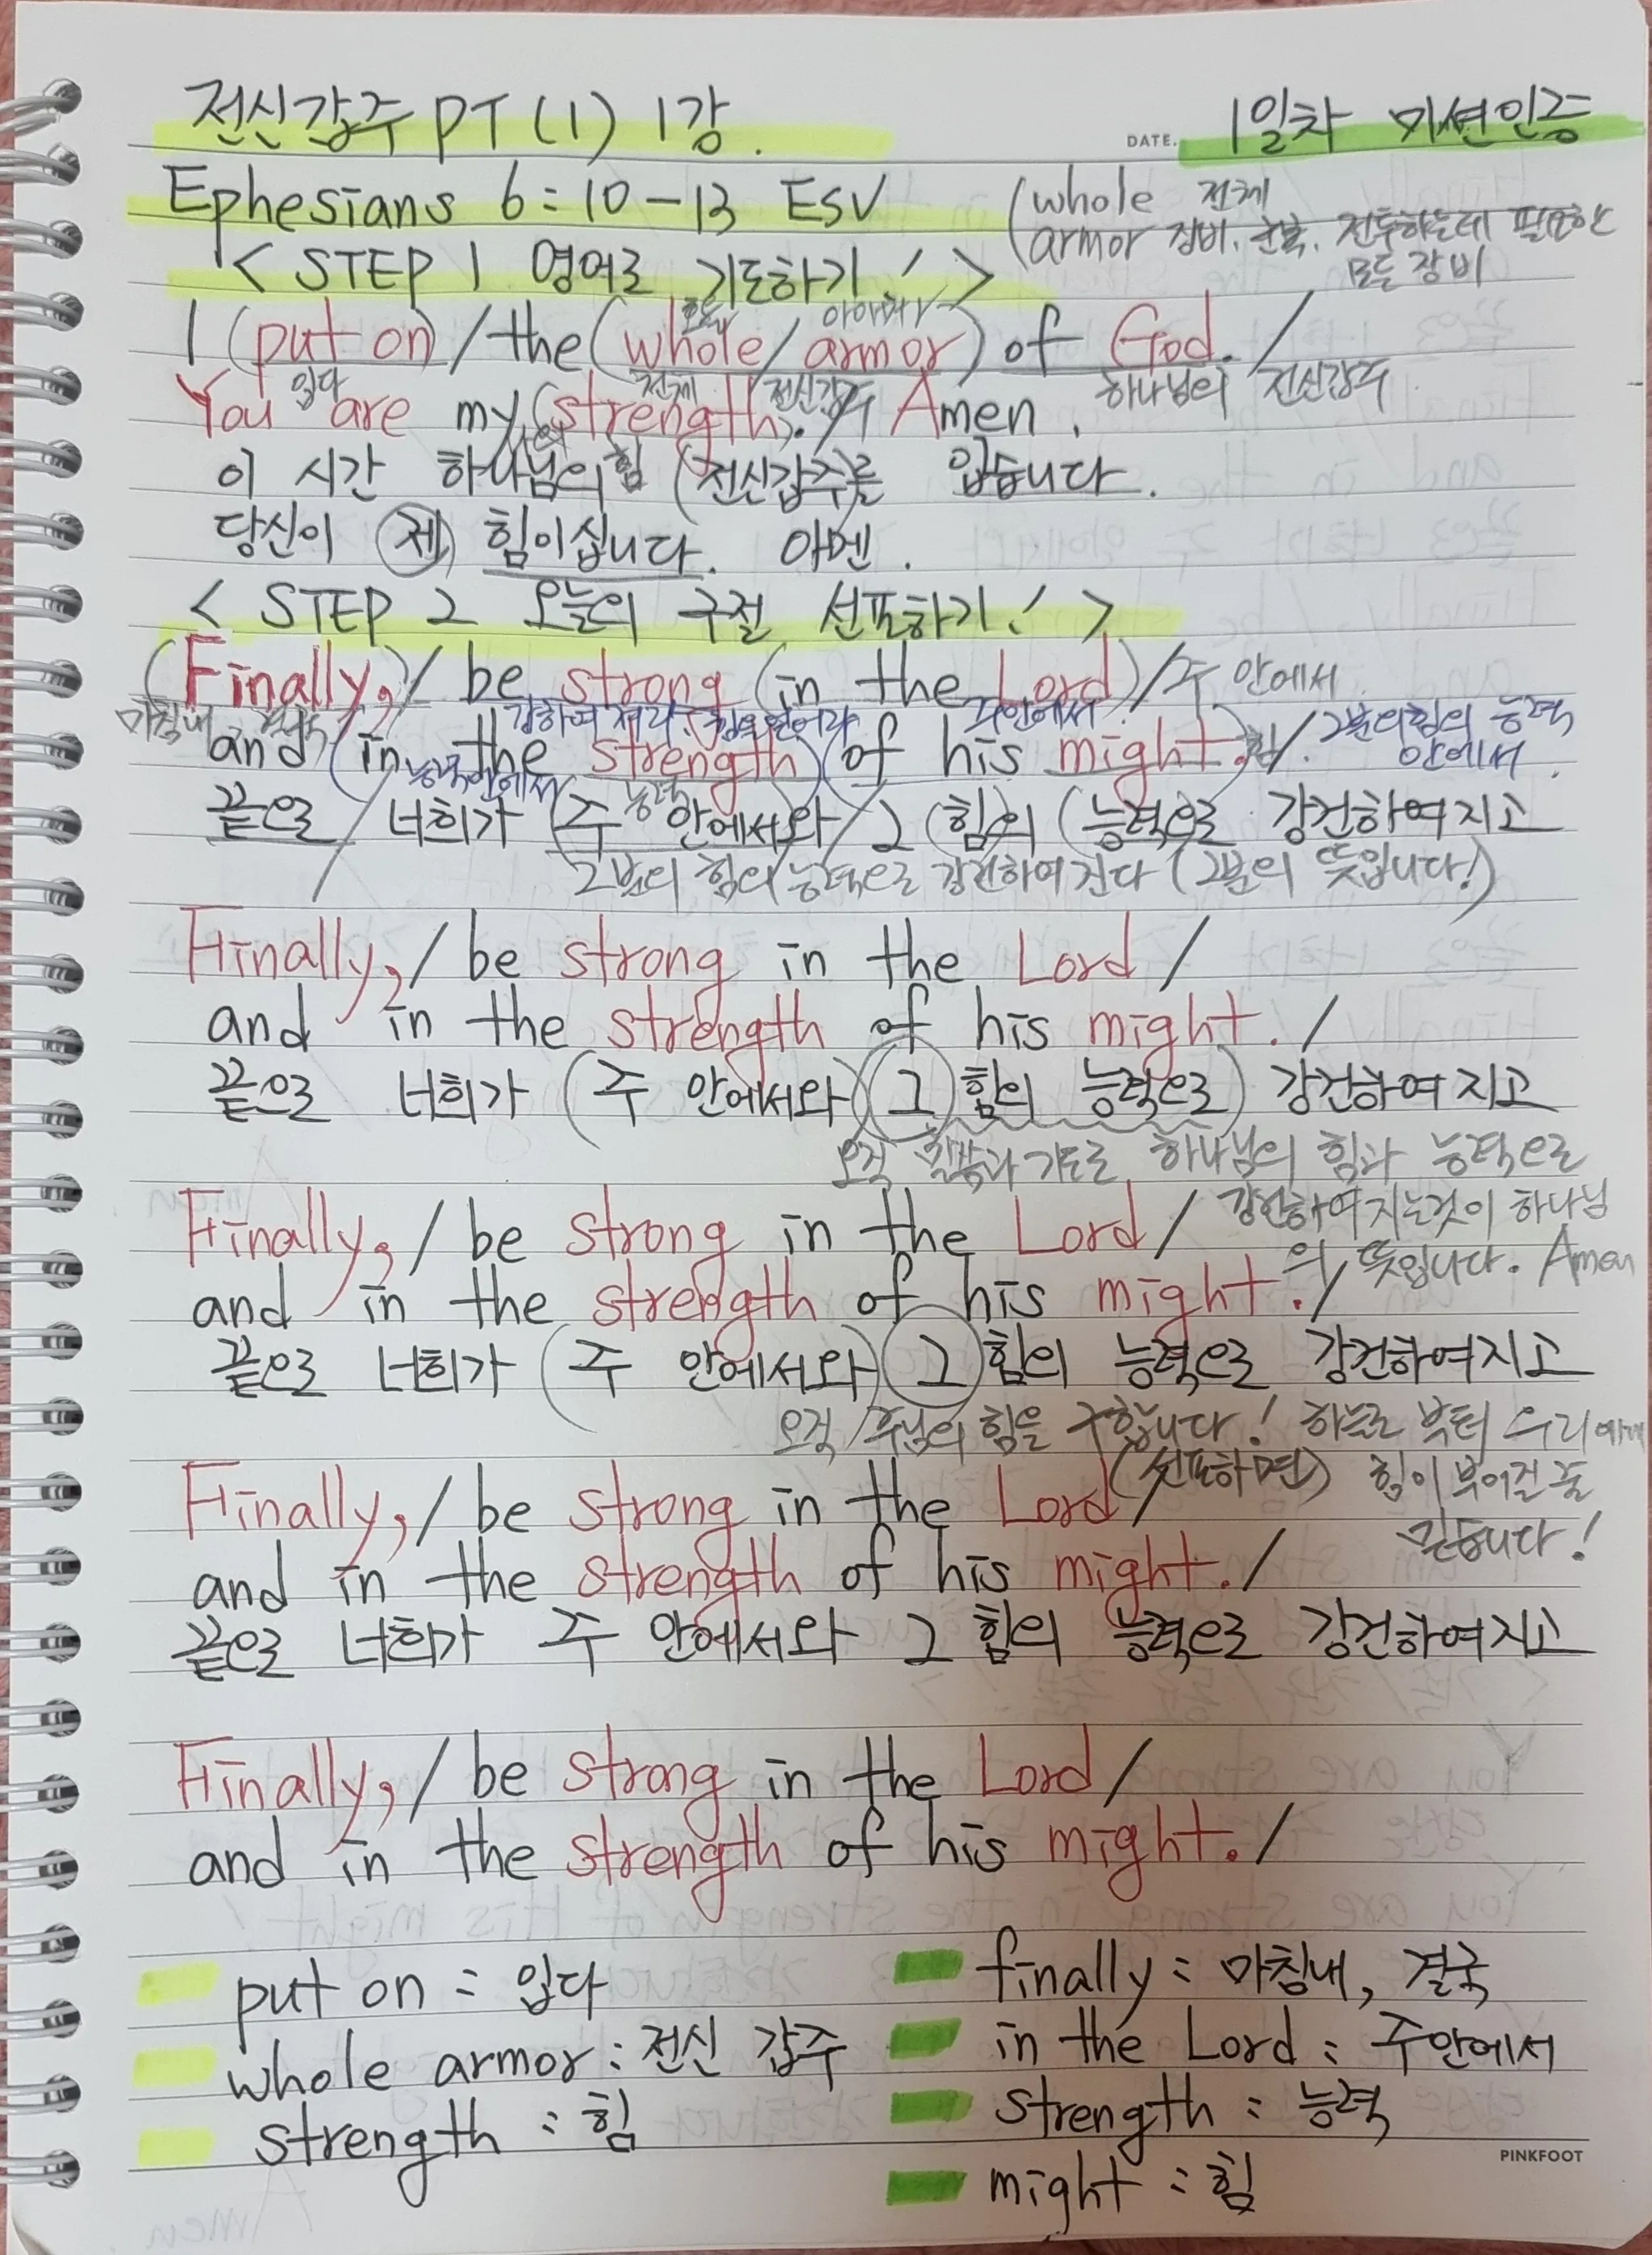 전신갑주 PT (1) 1강.
DATE. 1일차 미션인증
Ephesians 6:10-13 ESV
(whole 전체
armor 장비, 군복, 전투하는데 필요한
모든 장비
< STEP 1 영어로 기도하기! >
I (put on) / the (whole / armor) of God. /
입다 전체 전신갑주 하나님의 전신갑주
You are my (strength). / Amen.
이 시간 하나님의 힘 (전신갑주)를 입습니다.
당신이 제 힘이십니다. 아멘.
< STEP 2 오늘의 구절 선포하기! >
(Finally,) / be strong (in the Lord) / 주 안에서
마침내, 결국 주안에서
and (in the strength) (of his might.) 힘 /. 그분의 힘의 능력
안에서.
능력안에서 능력
끝으로 / 너희가 (주 안에서와 / 그 (힘)의 (능력으로 강건하여지고
그분의 힘의 능력으로 강건하여진다 (그분의 뜻입니다!)
Finally, / be strong in the Lord /
and in the strength of his might. /
끝으로 너희가 (주 안에서와) (그 힘의 능력으로) 강건하여지고
오직 말씀과 기도로 하나님의 힘과 능력으로
강건하여지는것이 하나님
의 뜻입니다. Amen
Finally, / be strong in the Lord /
and in the strength of his might. /
끝으로 너희가 (주 안에서와) 그 힘의 능력으로 강건하여지고
오직 주님의 힘을 구합니다! 하늘로 부터 우리에게
(선포하면) 힘이 부어질 줄
믿습니다!
Finally, / be strong in the Lord /
and in the strength of his might. /
끝으로 너희가 주 안에서와 그 힘의 능력으로 강건하여지고
Finally, / be strong in the Lord /
and in the strength of his might. /
put on : 입다
whole armor : 전신 갑주
strength : 힘
finally : 마침내, 결국
in the Lord : 주안에서
strength : 능력
might : 힘
PINKFOOT